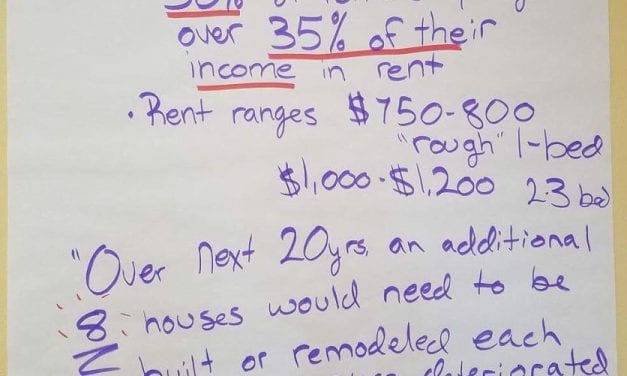 over 35% of their
income in rent
• Rent ranges $750-800
"rough" 1-bed
$1,000-$1,200 2-3 bd
"Over next 20yrs, an additional
8 houses would need to be
built or remodeled each
deteriorated